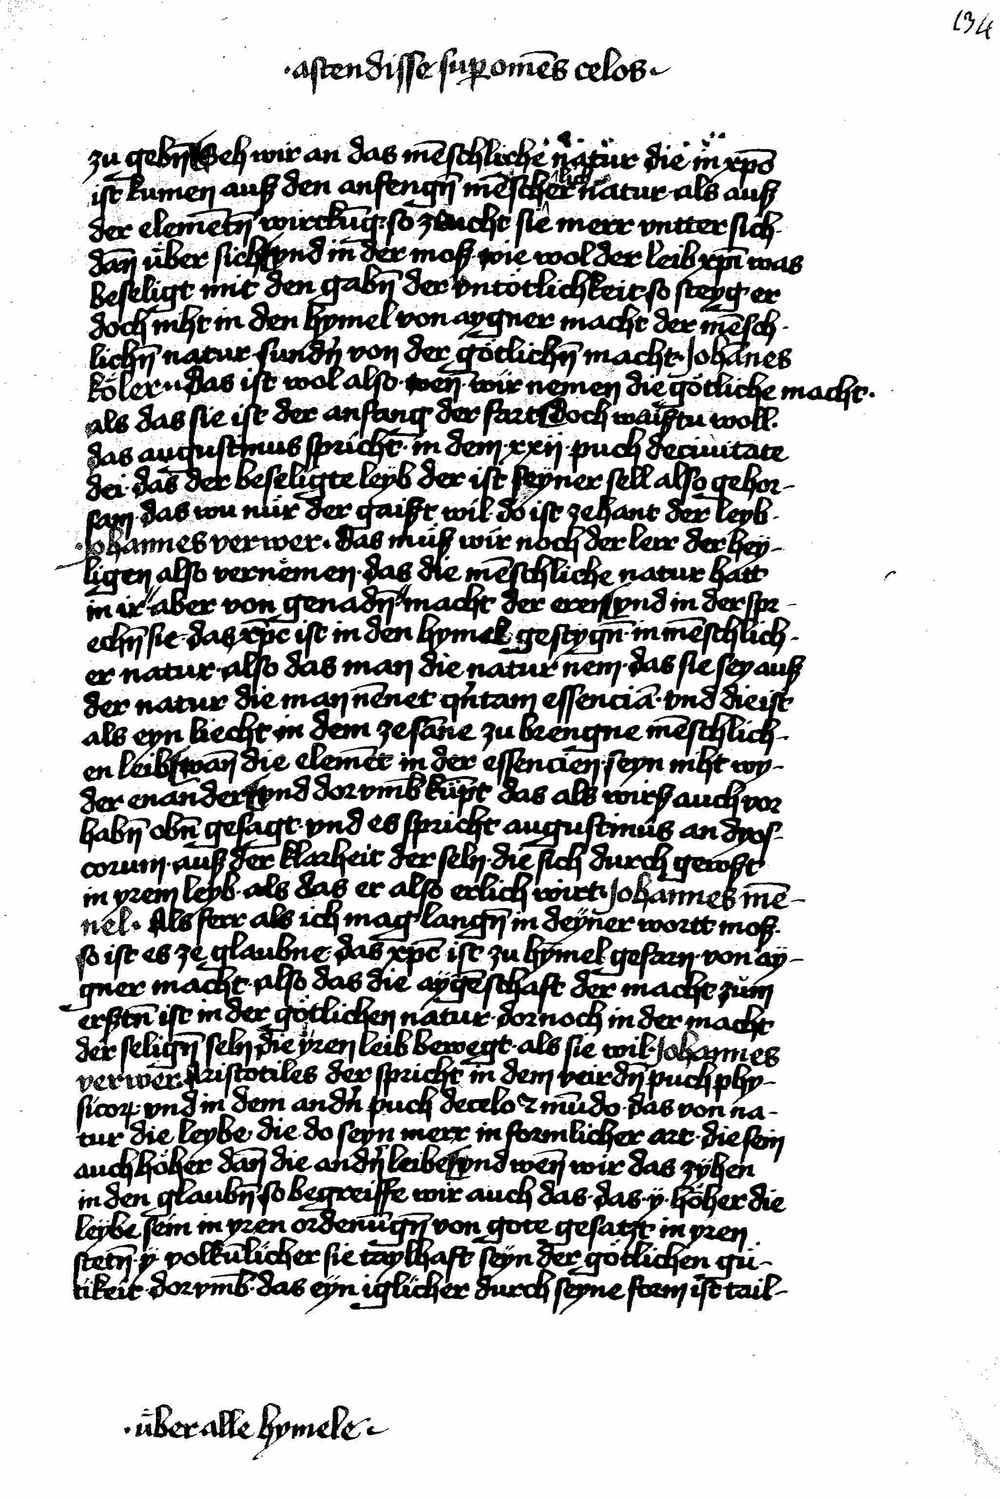 134
·ascendisse sup omēs celos·
zu gebn̄ Seh wir an das mēschliche natur die in xpō
ist kumen auß den anfengn̄ mēschlicher natur als auß
der elemētn̄ wirckūg· so zeucht sie merr vntter sich·
dan̄ über sich vnd in der moß wie wol der leib xpi was
beseligt mit den gabn̄ der vntötlichkeit· so steyg er
doch niht in den hymel von aygner macht der mēsch-
lichn̄ natur· sundn̄ von der götlichn̄ macht· Johānes
köler· das ist wol also wen̄ wir nemen die götliche macht·
als das sie ist der anfang der fart doch waistu woll·
das augustinus spricht· in dem xxij puch deciuitate
dei· das der beseligte leyb der ist seyner sell also gehor-
sam· das wu nür der gaist wil· do ist zehant der leyb·
Johannes verwer· das müß wir noch der lerr der hey-
ligen also vernemen· das die mēschliche natur hatt
in ir aber von genadn̄ macht der eren vnd in der spr-
echn̄ sie· das xpc ist in den hymel gestygn̄· in mēschlich-
er natur· also das man die natur nem· das sie sey auß
der natur die man nēnet qn̄tam essenciā· vnd die ist
als eyn liecht in dem zesāne zu brengne mēschlich-
en leib wan̄ die elemēt in der essencien seyn niht wy-
der enander vnd dorvmb kūpt das als wirß auch vor
habn̄ obn̄ gesagt· vnd es spricht augustinus an dyos-
corum· auß der klarheit der seln̄· die sich durch gewst
in yrem leyb· als das er also erlich wirt· Johannes mē-
nel· Als ferr als ich mag langn̄ in deyner wortt moß·
so ist es ze glaubne das xpc ist zu hymel gefarn· von ay-
gner macht· also das die aygēschaft der macht züm
erstn̄ ist in der götlichen natur· dornoch in der macht
der selign̄ seln̄ die yren leib bewegt· als sie wil· Johannes
verwer· Aristotiles der spricht in dem veirdn̄ puch phy-
sicoꝝ· vnd in dem andn̄ puch decelo ⁊ mūdo· das von na-
tur die leybe· die do seyn merr in formlicher art· die sein
auch höher dan̄ die andn̄ leibe vnd wen̄ wir das zyhen
in den glaubn̄ so begreiffe wir auch das· das· y· höher die
leybe sein in yren ordenūgn̄ von gote gesatzt· in yren
stetn̄· y volkūlicher sie taylhaft seyn der götlichen gü-
tikeit· dorvmb· das eyn iglicher durch seyne form ist tail-
·über alle hymele·